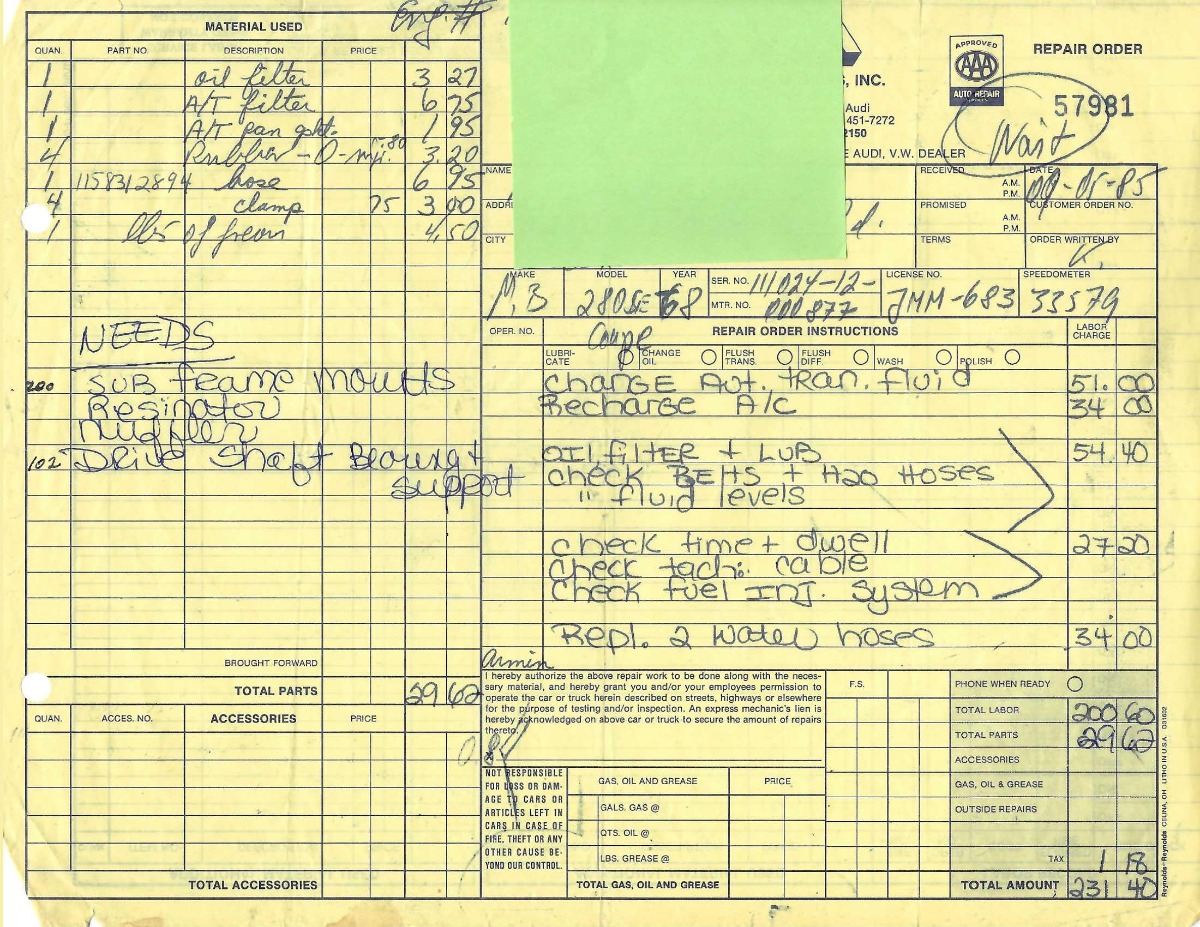 MATERIAL USED
Eng. #
QUAN. PART NO. DESCRIPTION PRICE
1 oil filter 3 27
1 A/T filter 6 75
1 A/T pan gskt. 1 95
4 Rubber - O - .80 3.20
1 1158312894 hose 6 95
4 clamp 75 3 00
1 lbs of freon 4,50
NEEDS
200 SUB frame mounts
Resinator
muffler
102 Drive Shaft Bearing +
support
BROUGHT FORWARD
TOTAL PARTS 29 62
QUAN. ACCES. NO. ACCESSORIES PRICE
TOTAL ACCESSORIES
, INC.
Audi
451-7272
2150
E AUDI, V.W. DEALER
APPROVED
AAA
AUTO REPAIR
SERVICES
REPAIR ORDER
57981
Wait
NAME
RECEIVED A.M. P.M.
DATE 09-05-85
ADDRE
d.
PROMISED A.M. P.M.
CUSTOMER ORDER NO.
CITY
TERMS
ORDER WRITTEN BY
K.
MAKE MODEL YEAR SER. NO. 111024-12- LICENSE NO. SPEEDOMETER
M,B 280SE 68 MTR. NO. 000877 JMM-683 33579
Coupe
OPER. NO. REPAIR ORDER INSTRUCTIONS LABOR CHARGE
LUBRI-CATE CHANGE OIL FLUSH TRANS. FLUSH DIFF. WASH POLISH
change Aut. tran. fluid 51.00
Recharge A/C 34 00
OIL filter + LUB 54.40
check BEltS + H2O Hoses
" fluid levels
check time + dwell 27 20
check tach. cable
check fuel INJ. system
Repl. 2 water hoses 34 00
Armin
I hereby authorize the above repair work to be done along with the neces-
sary material, and hereby grant you and/or your employees permission to
operate the car or truck herein described on streets, highways or elsewhere
for the purpose of testing and/or inspection. An express mechanic's lien is
hereby acknowledged on above car or truck to secure the amount of repairs
thereto.
x
NOT RESPONSIBLE
FOR LOSS OR DAM-
AGE TO CARS OR
ARTICLES LEFT IN
CARS IN CASE OF
FIRE, THEFT OR ANY
OTHER CAUSE BE-
YOND OUR CONTROL.
GAS, OIL AND GREASE PRICE
GALS. GAS @
QTS. OIL @
LBS. GREASE @
TOTAL GAS, OIL AND GREASE
F.S.
PHONE WHEN READY
TOTAL LABOR 200 60
TOTAL PARTS 29 62
ACCESSORIES
GAS, OIL & GREASE
OUTSIDE REPAIRS
TAX 1 18
TOTAL AMOUNT 231 40
Reynolds+Reynolds CELINA, OH LITHO IN U.S.A. 031632